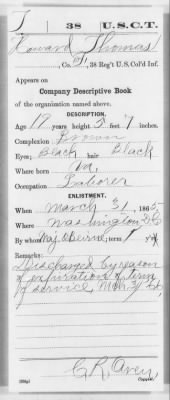 T | 38 | U.S.C.T.
Howard Thomas
, Co. , 38 Reg't U. S. Col'd Inf.
Appears on
Company Descriptive Book
of the organization named above.
DESCRIPTION.
Age 19 years; height 5 feet 7 inches.
Complexion Brown
Eyes Black ; hair Black
Where born Va.
Occupation Laborer
ENLISTMENT.
When March 31 , 1865.
Where Washington D.C.
By whom Maj. O'Beirne ; term 1 y'rs.
Remarks:
Discharged by reason
of expiration of term
of service, Mch 31/
C. R. Avery
Copyist.